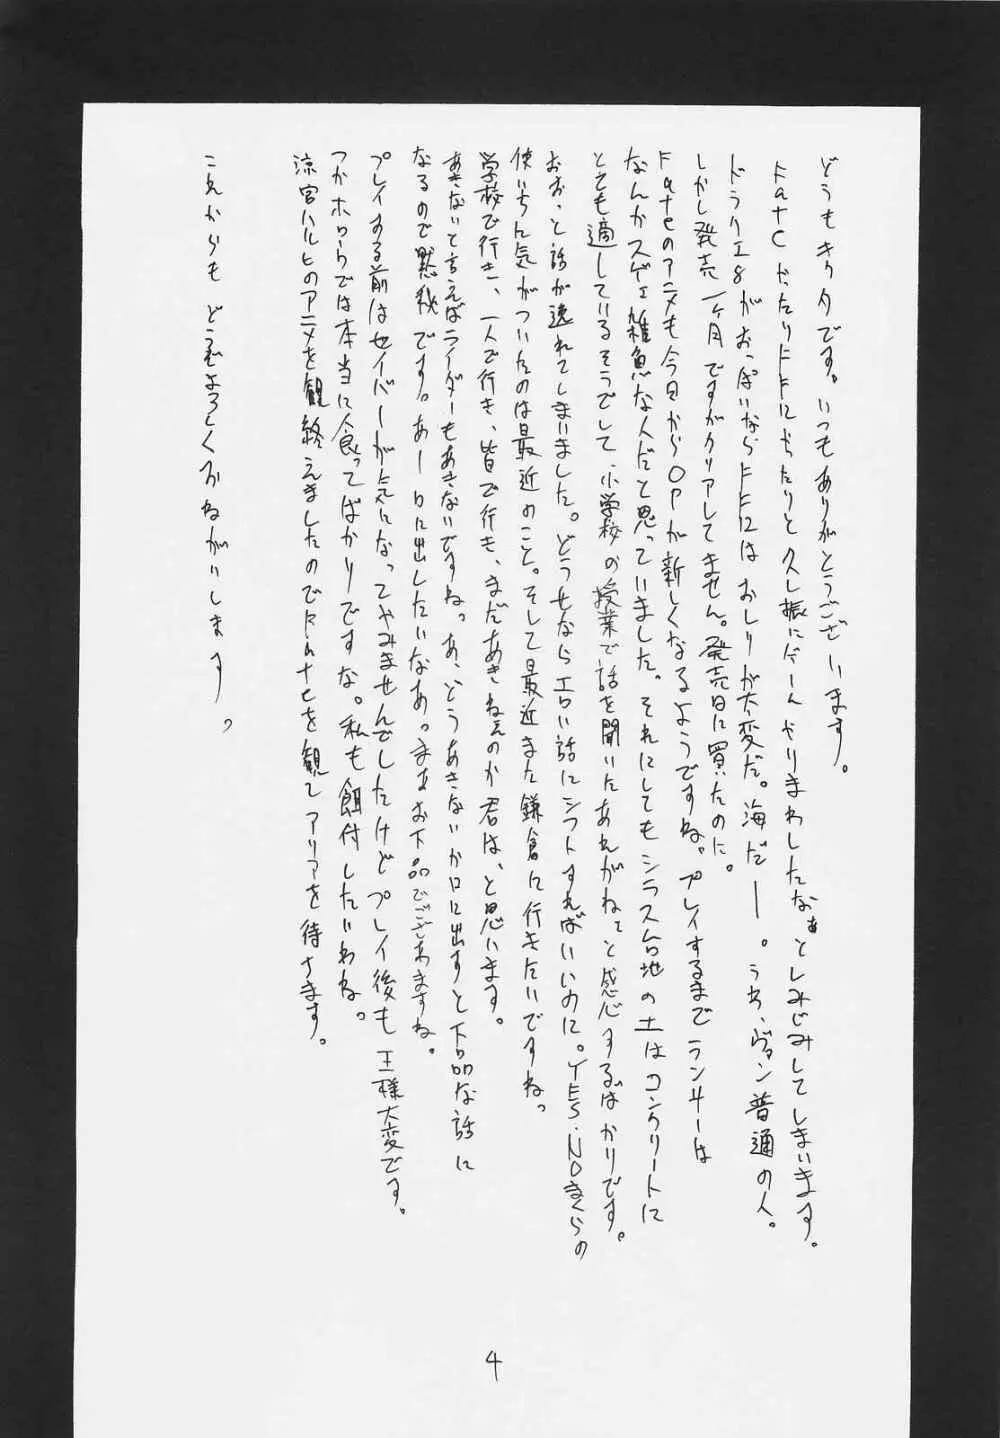 どうもキクタです。いつもありがとうございます。
FateやったりFF12やったりと久し振にゲームやりまわしたなぁとしみじみしてしまいます。
ドラクエ8がおっぱいならFF12はおしりが大変だ。海だー。うち、ヴァン普通の人。
しかし発売一ヶ月ですがクリアしてません。発売日に買ったのに。
Fateのアニメも今日からOPが新しくなるようですね。プレイするまでランサーは
なんかスゲェ雑魚な人だと思っていました。それにしてもシラス台地の土はコンクリートに
とても適しているそうでして、小学校の授業で話を聞いたあれがねぇと感心するばかりです。
おおっと話が逸れてしまいました。どうせならエロい話にシフトすればいいのに。YES・NOまくらの
使いみちに気がついたのは最近のこと。そして最近また鎌倉に行きたいですねっ
学校で行き、一人で行き、皆で行き、まだあきねぇのか君は、と思います。
あきないと言えばライダーもあきないですねっ あ、どうあきないか口に出すと下品な話に
なるので黙秘です。あー口に出したいなあっ まぁお下品でござぁますね。
プレイする前はセイバーが気になってやみませんでしたけどプレイ後も王様大変です。
つかホロウでは本当に食ってばかりですな。私も餌付したいわね。
涼宮ハルヒのアニメを観終えましたのでFateを観てアリアを待ちます。
これからもどうぞよろしくおねがいします。
4